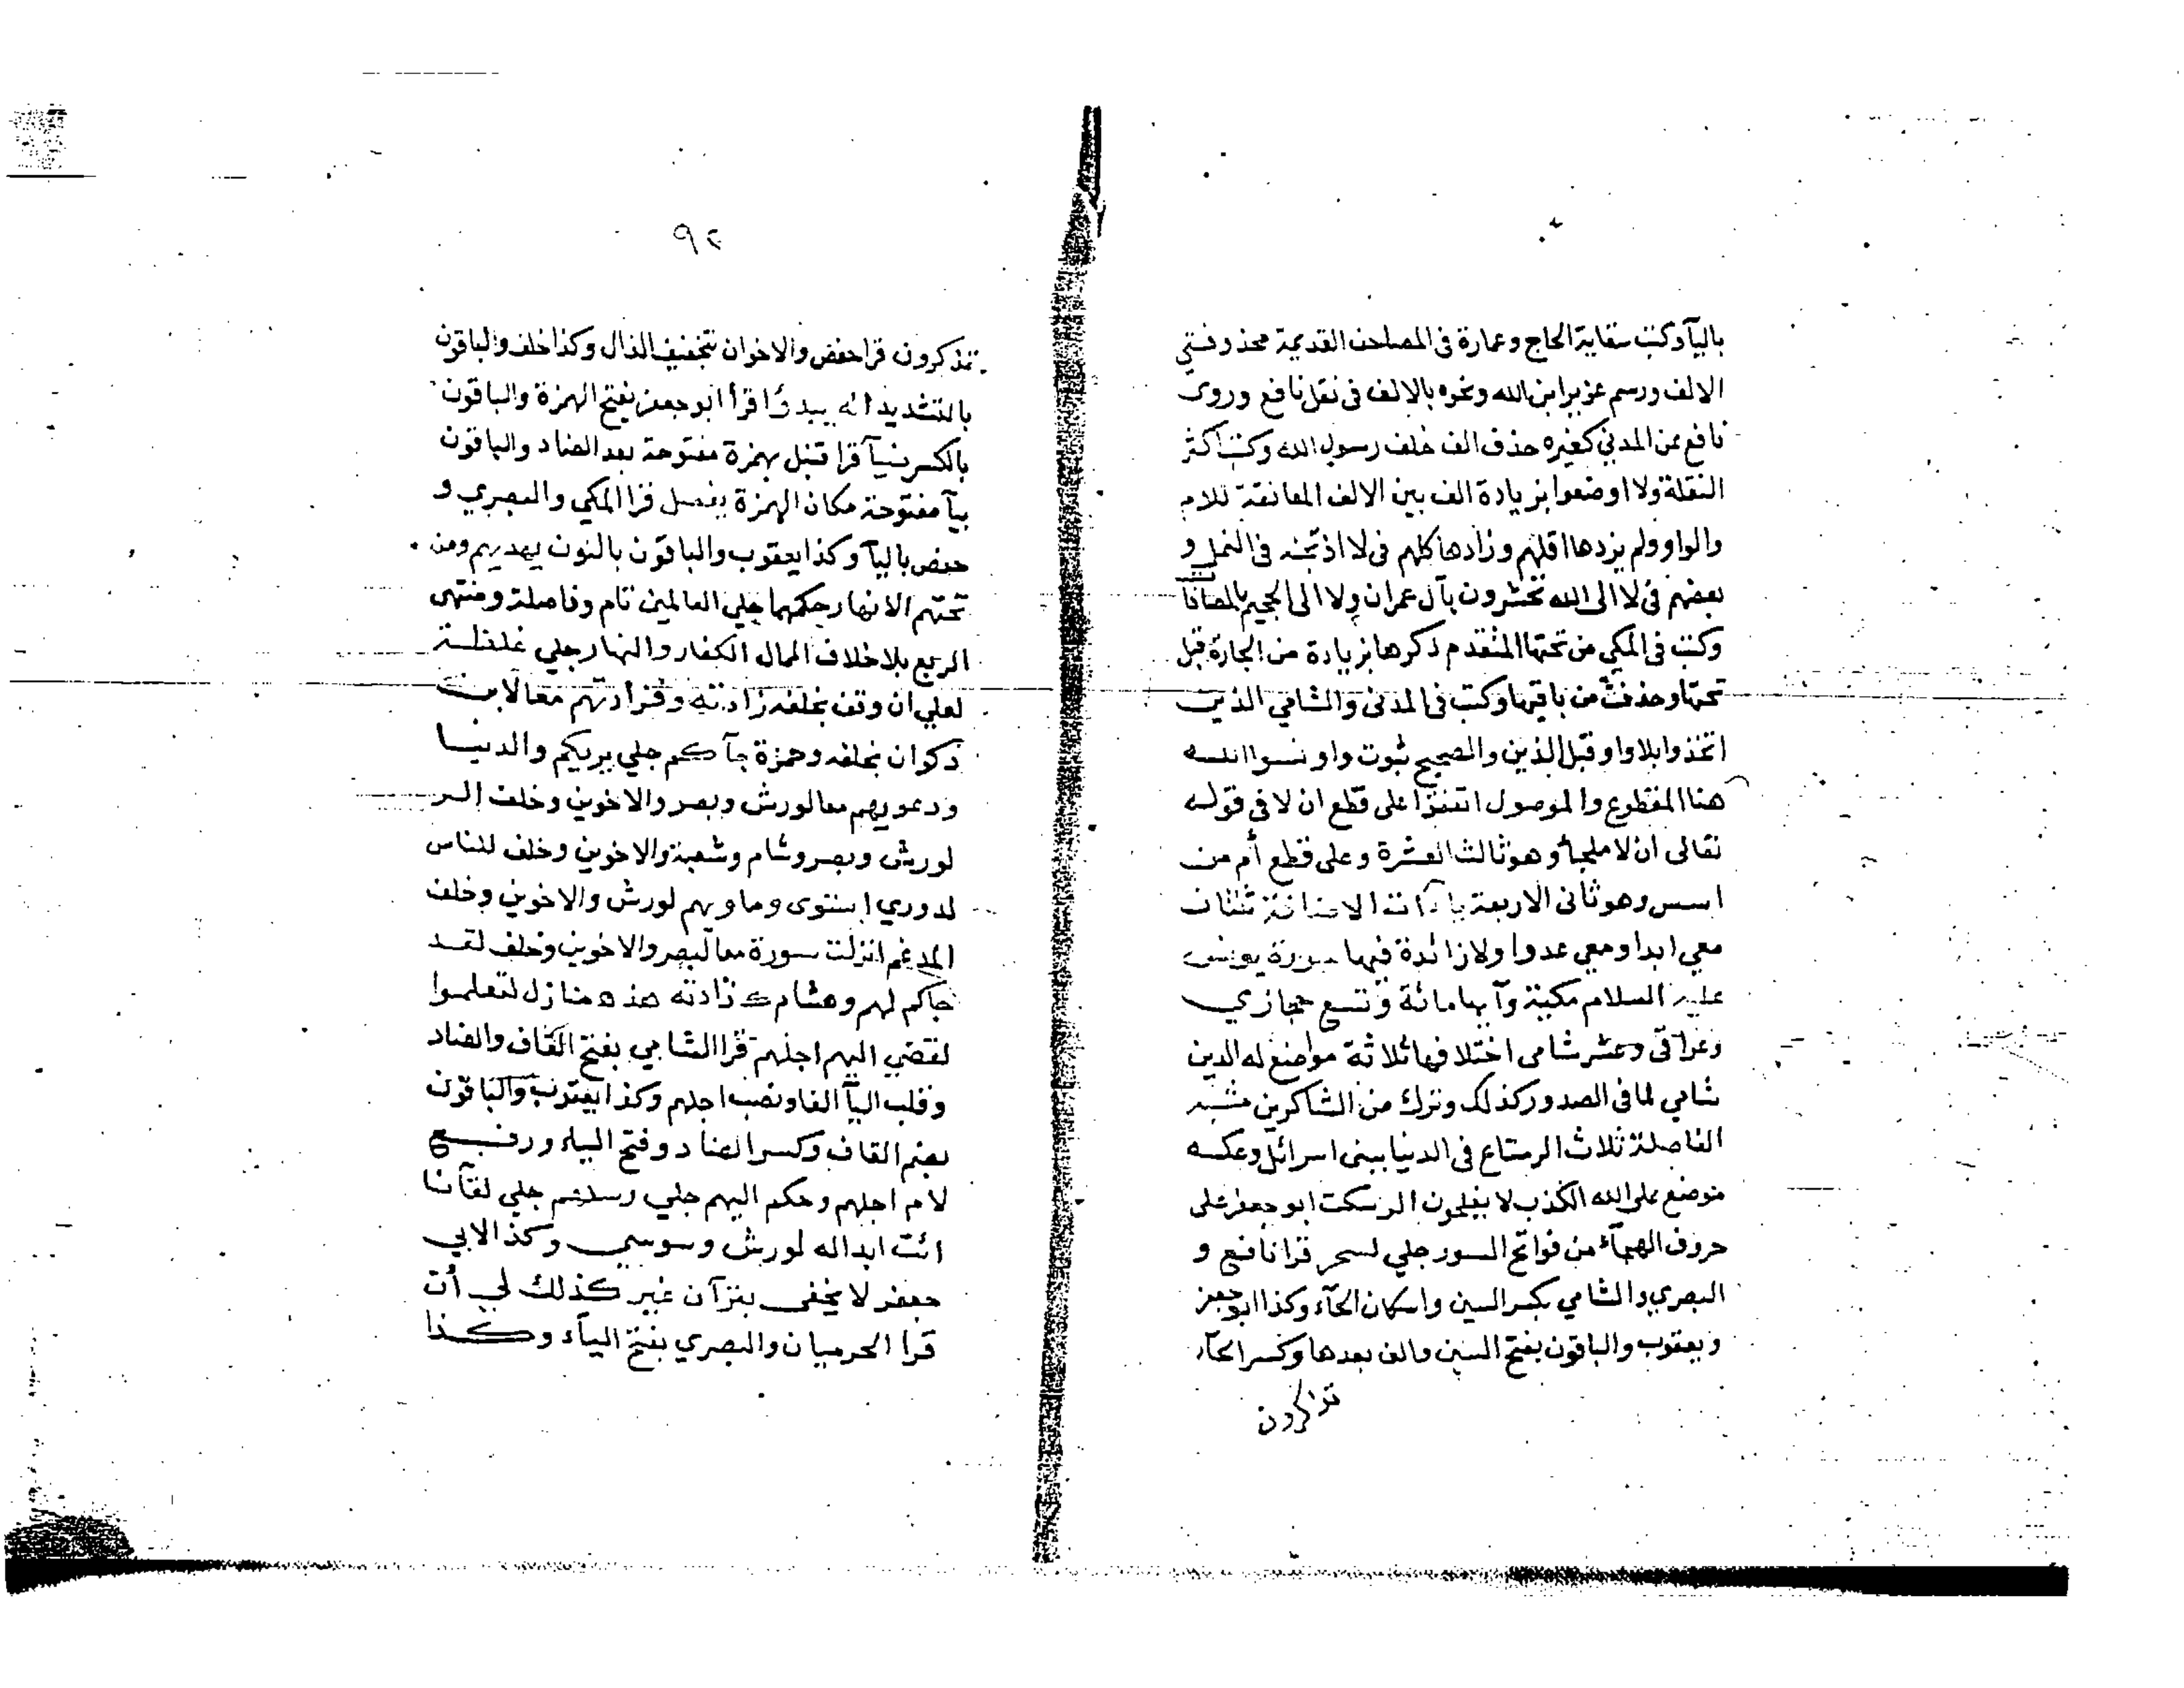 باليآ وكتب سقاية الحاج وعمارة فى المصاحف القديمة محذوفتي
الالف ورسم عزير ابن الله ونحوه بالالف فى نقل نافع وروى
نافع عن المدني كغيره حذف الف خلف رسول الله وكتب اكثر
النقلة ولا اوضعوا بزيادة الف بين الالف المعانقة للام
والواو ولم يزدها اقلهم وزادها كلهم فى لا اذبحنه فى النمل و
بعضهم فى لا الى الله تحشرون بآل عمران ولا الى الجحيم بالصافا
وكتب فى المكي من تحتها المتقدم ذكرها بزيادة من الجارة قبل
تحتها وحذفت من باقيها وكتب فى المدنى والشامي الذين
اتخذوا بلا واو قبل الذين والصحيح ثبوت واو نسوا الله
هنا المقطوع والموصول اتفقوا على قطع ان لا فى قوله
تعالى ان لا ملجأ وهو ثالث العشرة وعلى قطع أم من
اسس وهو ثانى الاربعة ياآت الاضافة ثنتان
معي ابدا ومعي عدوا ولا زائدة فيها سورة يونس
عليه السلام مكية وآيها مائة وتسع حجازي
وعراقى وعشر شامى اختلافها ثلاثة مواضع له الدين
شامي لما فى الصدور كذلك وترك من الشاكرين مشبه
الفاصلة ثلاث الر متاع فى الدنيا ببنى اسرائل وعكسه
موضع على الله الكذب لا يفلحون الر سكت ابو جعفر على
حروف الهجآء من فواتح السور جلي لسحر قرا نافع و
البصري والشامي بكسر السين واسكان الحآء وكذا ابو جعفر
ويعقوب والباقون بفتح السين والف بعدها وكسر الحآء
تذكرون
٩٢
تذكرون قرا حفص والاخوان بتخفيف الذال وكذا خلف والباقون
بالتشديد انه يبدؤا قرأ ابو جعفر بفتح الهمزة والباقون
بالكسر ضيآ قرا قنبل بهمزة مفتوحة بعد الضاد والباقون
بيآ مفتوحة مكان الهمزة يفصل قرا المكي والبصري و
حفص باليآ وكذا يعقوب والباقون بالنون يهديهم ومن
تحتهم الانهار حكمهما جلي العالمين تام وفاصلة ومنتهى
الربع بلا خلاف الممال الكفار والنهار جلي غلظة
لعلي ان وقف بخلفه زادته وفزادتهم معا لابن
ذكوان بخلفه وحمزة جآكم جلي يريكم والدنيا
ودعويهم معا لورش وبصر والاخوين وخلف الر
لورش وبصر وشام وشعبة والاخوين وخلف للناس
لدوري استوى وماويهم لورش والاخوين وخلف
المدغم انزلت سورة معا لبصر والاخوين وخلف لقد
جاكم لهم وهشام ك زادته هذه منازل لتعلموا
لقضي اليهم اجلهم قرا الشامي بفتح القاف والضاد
وقلب اليآ الفا ونصب اجلهم وكذا يعقوب والباقون
بضم القاف وكسر الضاد وفتح الياء ورفع
لام اجلهم وحكم اليهم جلي رسلهم جلي لقآنا
ائت ابداله لورش وسوسي وكذا لابي
جعفر لا يخفى بقرآن غير كذلك لي أن
قرا الحرميان والبصري بفتح اليآء وكذا